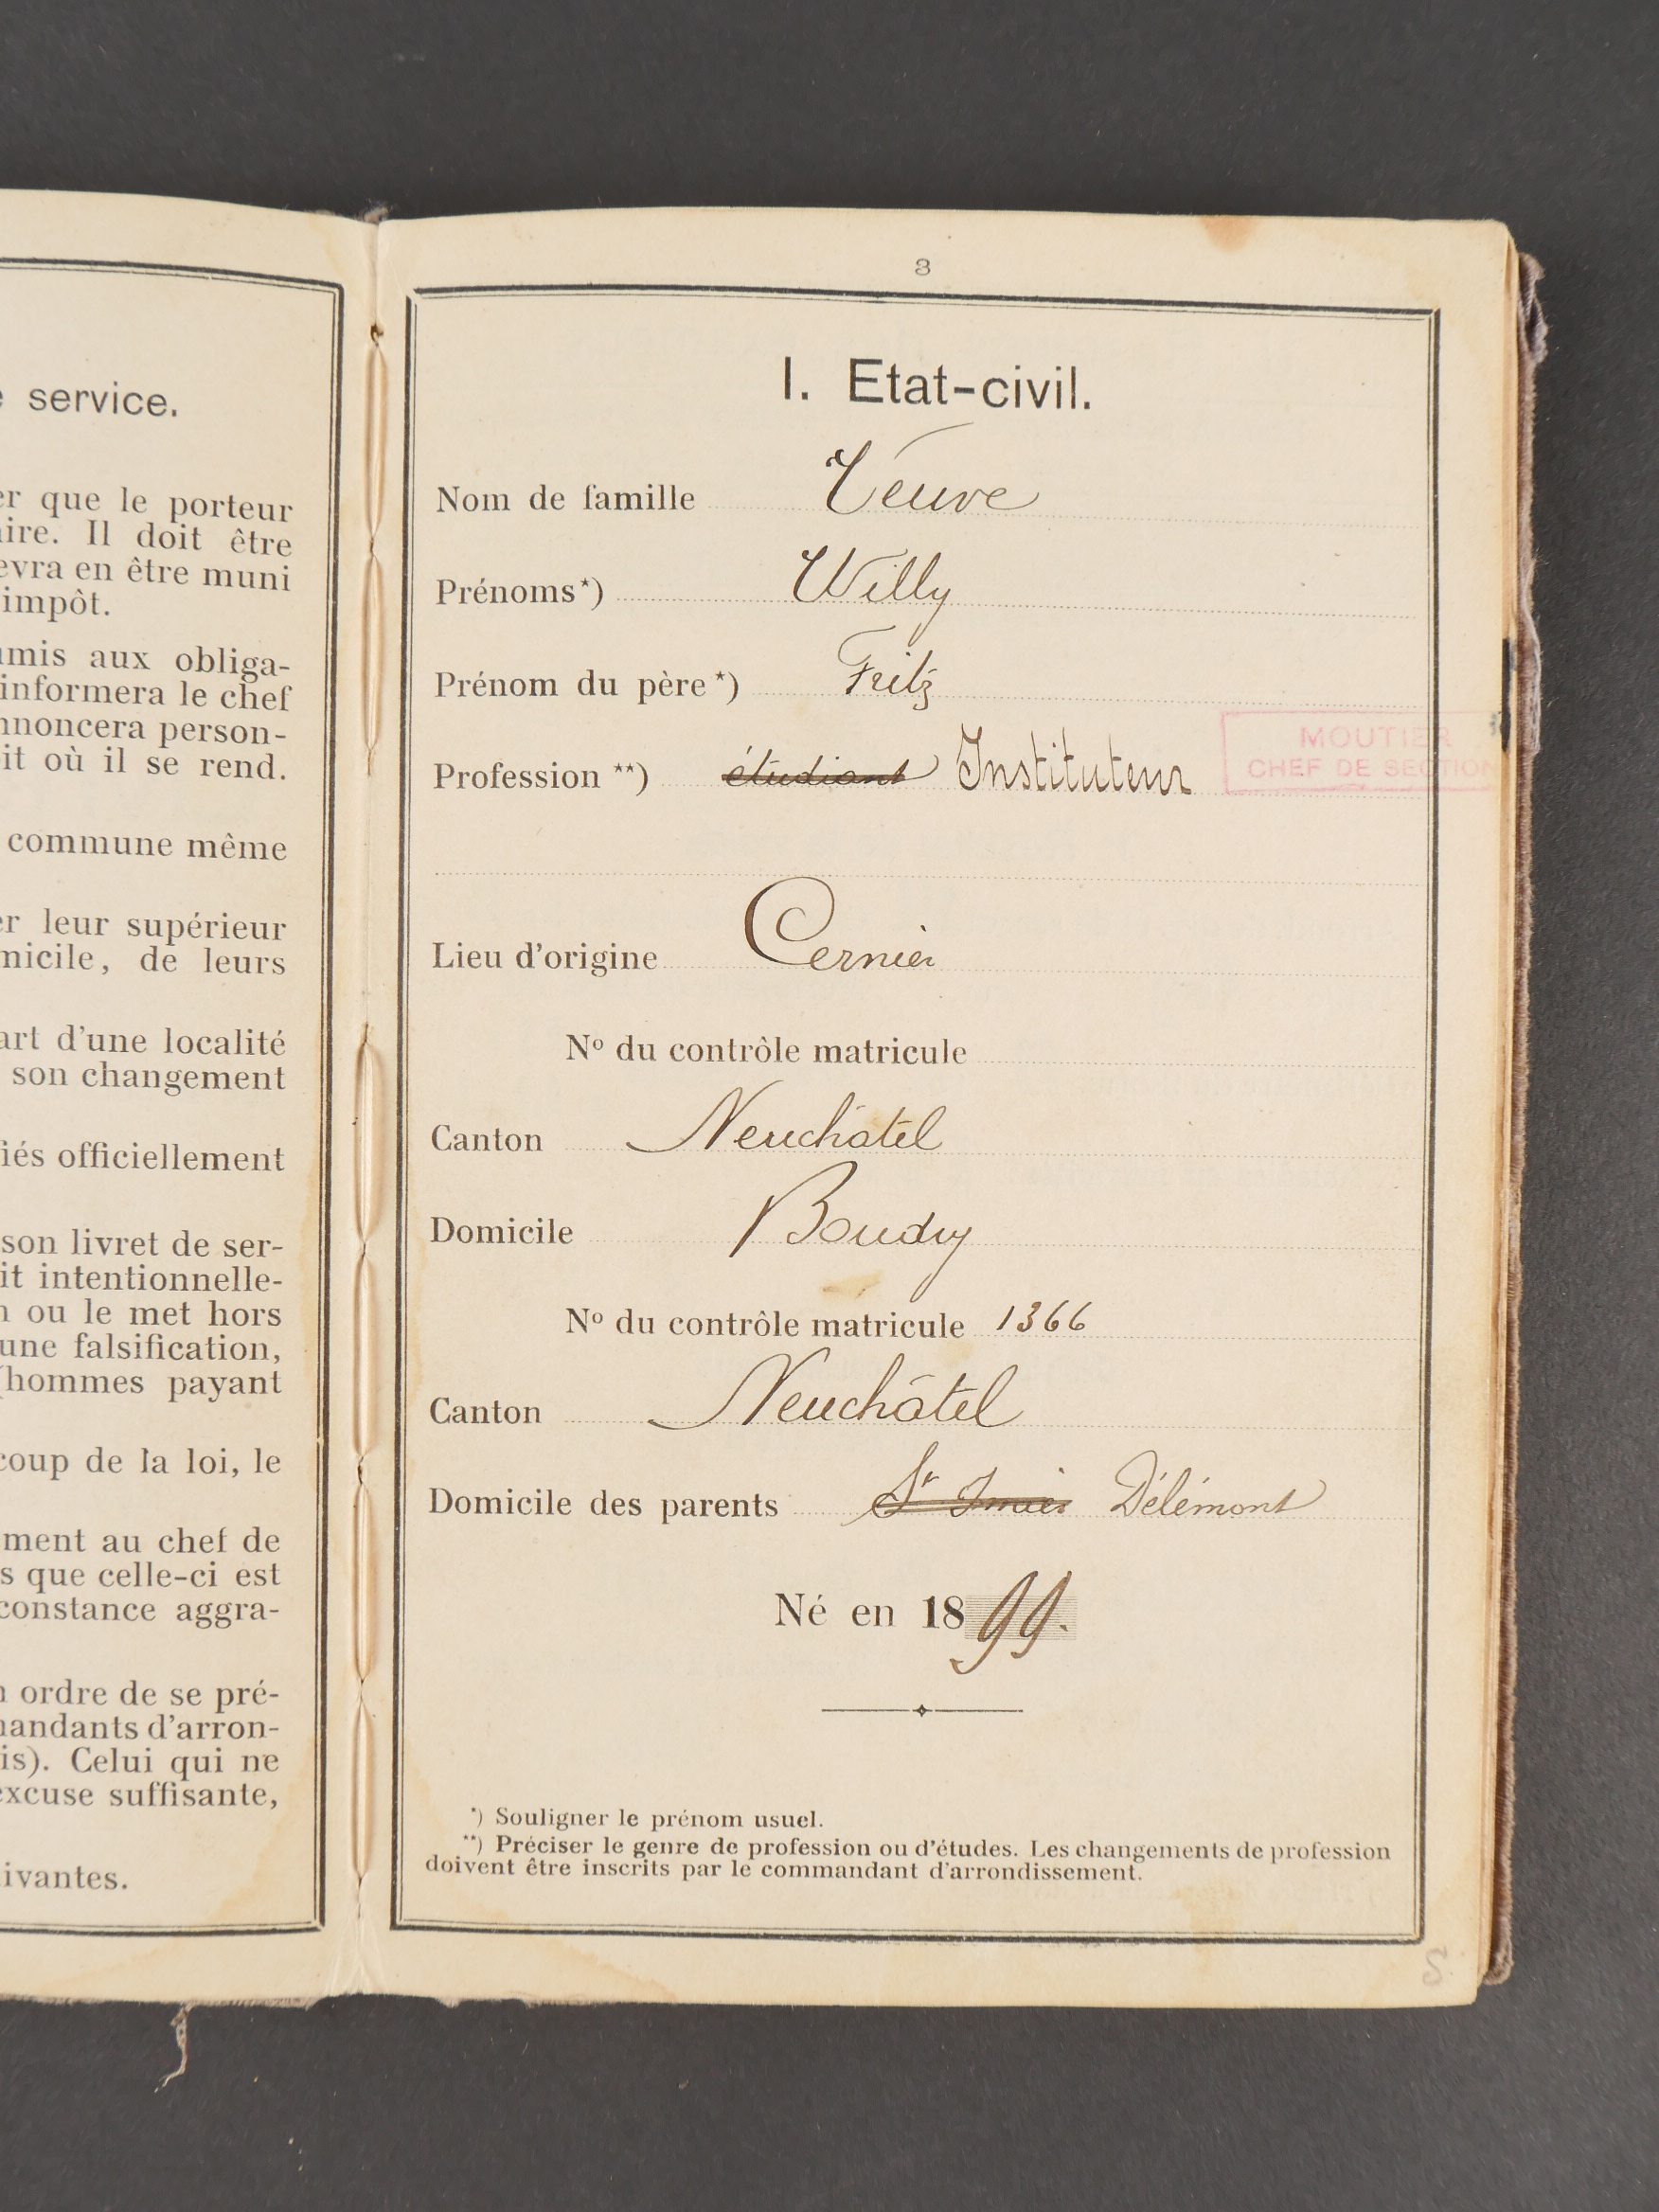 service.
er que le porteur
aire. Il doit être
evra en être muni
impôt.
umis aux obliga-
informera le chef
nnoncera person-
it où il se rend.
commune même
er leur supérieur
micile, de leurs
art d'une localité
son changement
iés officiellement
son livret de ser-
it intentionnelle-
n ou le met hors
une falsification,
(hommes payant
coup de la loi, le
ment au chef de
s que celle-ci est
constance aggra-
n ordre de se pré-
mandants d'arron-
is). Celui qui ne
excuse suffisante,
ivantes.
3
I. Etat-civil.
Nom de famille Veuve
Prénoms*) Willy
Prénom du père*) Fritz
Profession **) étudiant Instituteur
MOUTIER
CHEF DE SECTION
Lieu d'origine Cernier
Nº du contrôle matricule
Canton Neuchâtel
Domicile Boudry
Nº du contrôle matricule 1366
Canton Neuchâtel
Domicile des parents St Imier Délémont
Né en 1899.
*) Souligner le prénom usuel.
**) Préciser le genre de profession ou d'études. Les changements de profession
doivent être inscrits par le commandant d'arrondissement.
S.